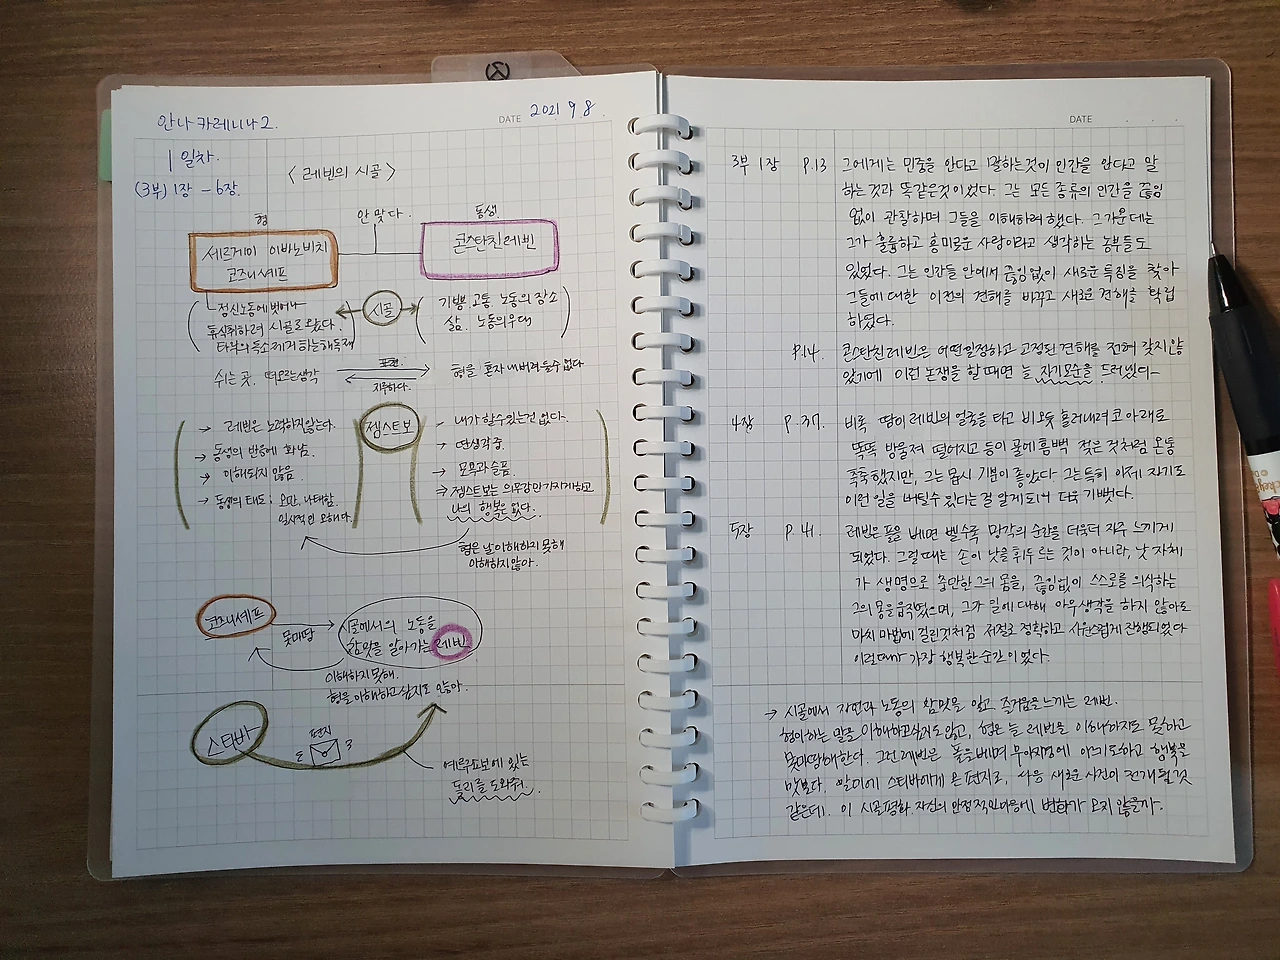 안나 카레니나 2.
DATE 2021 9. 8
1일차.
(3부) 1장 - 6장.
〈레빈의 시골〉
형
안 맞다.
동생.
세르게이 이바노비치
코즈니셰프
콘스탄친 레빈
정신노동에 벗어나
휴식취하려 시골로 왔다.
타부의 독소 제거 하는 해독제
시골
기쁨 고통 노동의 장소
삶. 노동의 무대
쉬는 곳. 떠오르는 생각
지루하다.
형을 혼자 내버려 둘 수 없다
젬스트보
→ 레빈은 노력하지 않는다.
→ 동생의 반응에 화남.
→ 이해되지 않음
→ 동생의 태도: 오만, 나태함.
일시적인 오해다.
내가 할 수 있는건 없다.
→ 딴생각 중.
→ 모욕과 슬픔.
⇒ 젬스트보는 의무감만 가지게 하고
나의 행복은 없다.
형은 날 이해하지 못해
이해하지 않아.
코즈니셰프
못마땅
시골에서의 노동을
참맛을 알아가는 레빈
이해하지 못해.
형을 이해하고 싶지도 않아.
스티바
편지
예르구쇼보에 있는
돌리를 도와줘.
DATE
3부 1장 P.13 그에게는 민중을 안다고 말하는것이 인간을 안다고 말
하는것과 똑같은것이었다. 그는 모든 종류의 인간을 끊임
없이 관찰하며 그들을 이해하려 했다. 그 가운데는
그가 훌륭하고 흥미로운 사람이라고 생각하는 농부들도
있었다. 그는 인간들 안에서 끊임없이 새로운 특징을 찾아
그들에 대한 이전의 견해를 바꾸고 새로운 견해를 확립
하였다.
P.14. 콘스탄친 레빈은 어떤 일정하고 고정된 견해를 전혀 갖지 않
았기에 이런 논쟁을 할 때면 늘 자기모순을 드러냈다-
4장 P.37. 비록 땀이 레빈의 얼굴을 타고 비오듯 흘러내려 코 아래로
똑똑 방울져 떨어지고 등이 물에 흠뻑 젖은 것처럼 온통
축축했지만, 그는 몹시 기분이 좋았다. 그는 특히 이제 자기도
이런 일을 버틸수 있다는 걸 알게 되어 더욱 기뻤다.
5장 P.41. 레빈은 풀을 베면 벨수록 망각의 순간을 더욱더 자주 느끼게
되었다. 그럴 때는 손이 낫을 휘두르는 것이 아니라, 낫 자체
가 생명으로 충만한 그의 몸을, 끊임없이 스스로를 의식하는
그의 몸을 움직였으며, 그가 일에 대해 아무 생각을 하지 않아도
마치 마법에 걸린것처럼 저절로 정확하고 사원스럽게 진행되었다
이럴때가 가장 행복한 순간이었다.
→ 시골에서 자연과 노동의 참맛을 알고, 즐거움을 느끼는 레빈.
형이 하는 말을 이해하고 싶지도 않고, 형은 늘 레빈을 이해하지도 못하고
못마땅해한다. 그런 레빈은 풀을 베며 무아지경에 이르도하고 행복을
맛보다. 말미에 스티바에게 온 편지로, 다음 새로운 사건이 전개 될것
같은데. 이 시골 평화. 자신의 안정적인 마음에 변화가 오지 않을까.